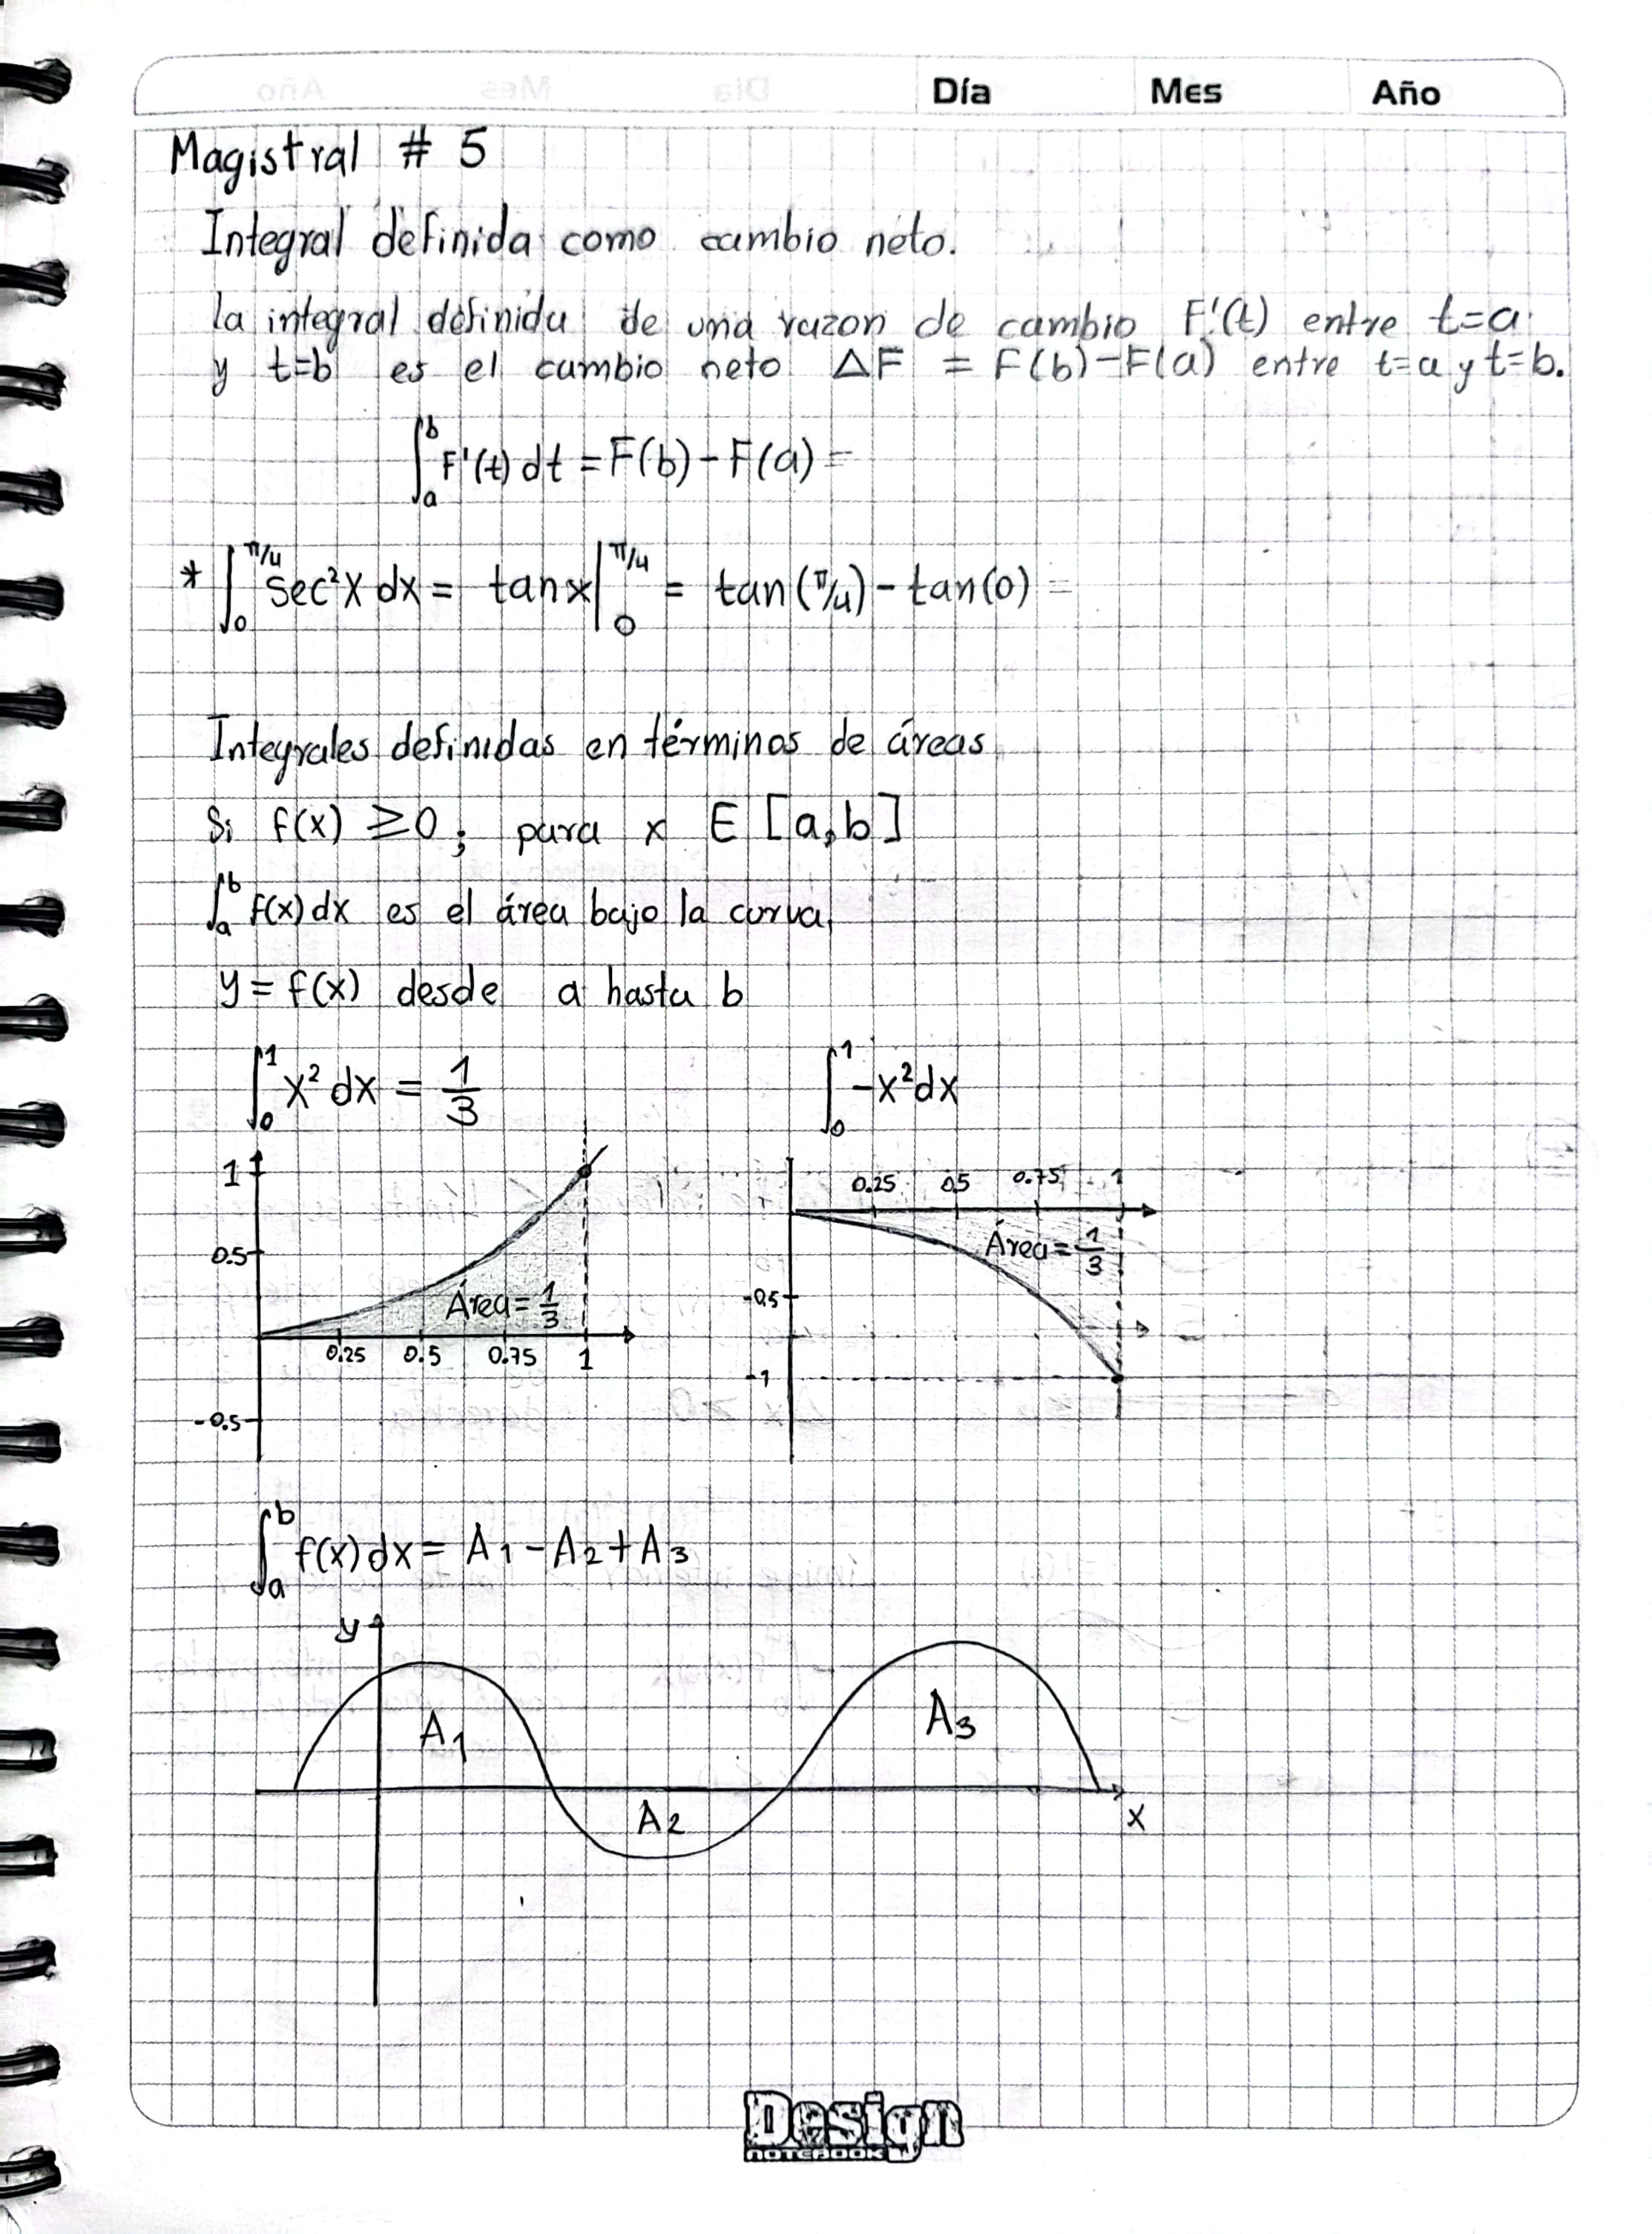 Día Mes Año
Magistral # 5
Integral definida como cambio neto.
la integral definida de una razon de cambio F'(t) entre t=a
y t=b es el cambio neto ΔF = F(b)-F(a) entre t=a y t=b.
∫ₐᵇ F'(t) dt = F(b) - F(a) =
* ∫₀^π/4 sec²x dx = tan x |₀^π/4 = tan(π/4) - tan(0) =
Integrales definidas en términos de áreas
Si f(x) ≥ 0; para x E [a,b]
∫ₐᵇ f(x) dx es el área bajo la curva,
y = f(x) desde a hasta b
∫₀¹ x² dx = 1/3 ∫₀¹ -x² dx
1
0.5
Área = 1/3
0.25 0.5 0.75 1
-0.5
0.25 0.5 0.75 1
Área = 1/3
-0.5
-1
∫ₐᵇ f(x) dx = A₁ - A₂ + A₃
y
A₁ A₃
A₂
x
Design
NOTEBOOK